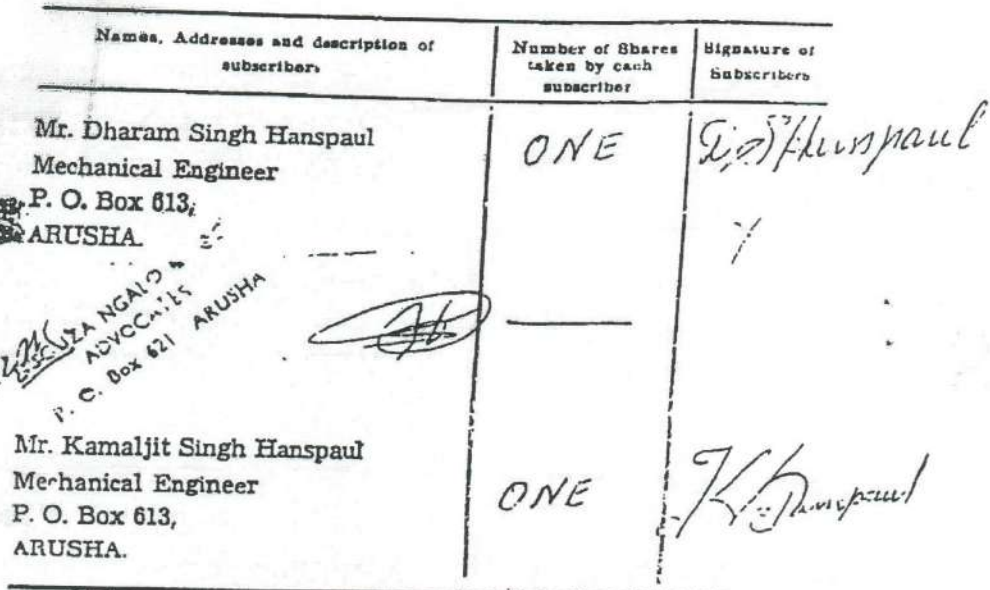 Names, Addresses and description of subscribers
Number of Shares taken by each subscriber
Signature of Subscribers
Mr. Dharam Singh Hanspaul
Mechanical Engineer
P. O. Box 613,
ARUSHA.
ONE
Hunspaul
NGALO
ADVOCATES
P. O. Box 621 ARUSHA
Mr. Kamaljit Singh Hanspaul
Mechanical Engineer
P. O. Box 613,
ARUSHA.
ONE